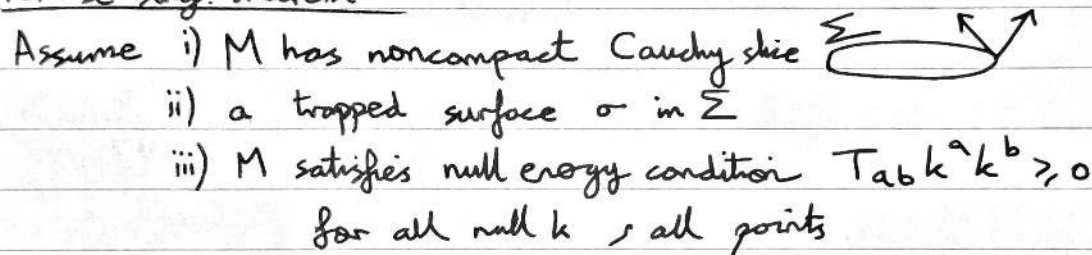 sing. theorem
Assume i) M has noncompact Cauchy slice Σ
ii) a trapped surface σ in Σ
iii) M satisfies null energy condition T_{ab} k^a k^b ⩾ 0
for all null k, all points